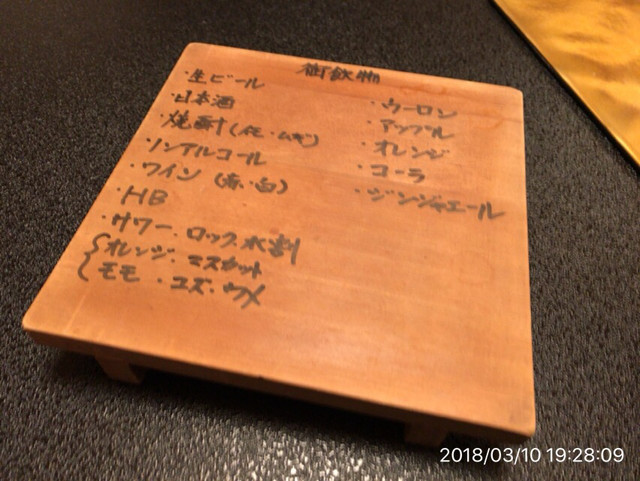 御飲物
・生ビール
・日本酒
・焼酎(イモ・ムギ)
・ノンアルコール
・ワイン(赤・白)
・HB
・サワー・ロック・水割
オレンジ・マスカット
モモ・ユズ・ウメ
・ウーロン
・アップル
・オレンジ
・コーラ
・ジンジャエール
2018/03/10 19:28:09